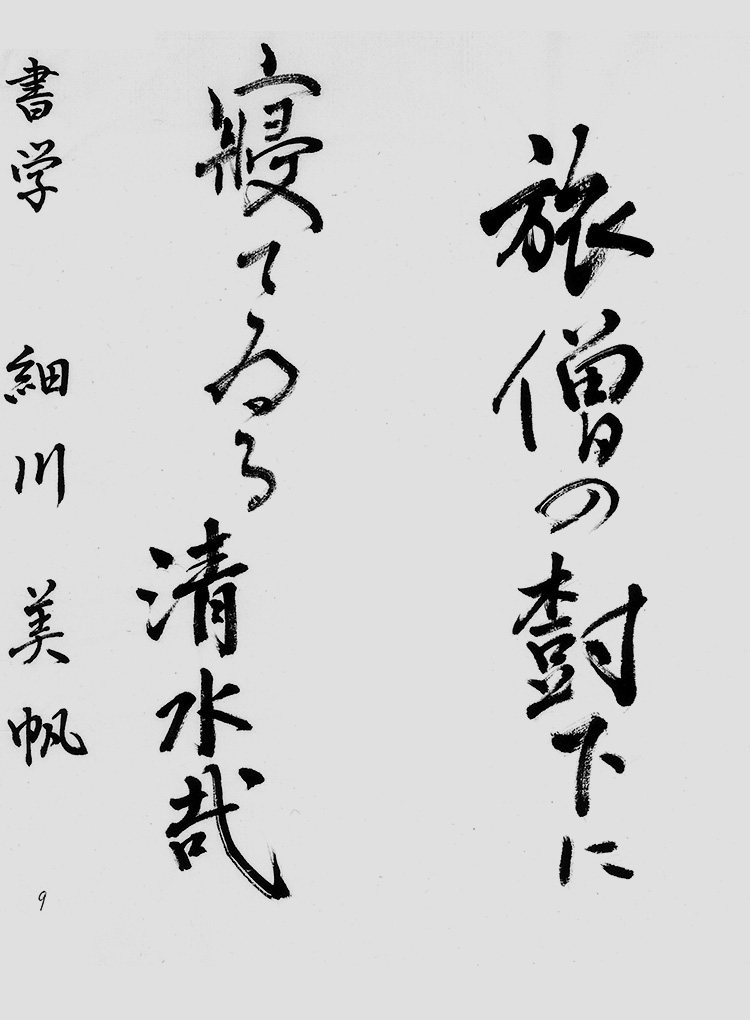 旅僧の樹下に
寝てゐる清水哉
書学 細川 美帆
9